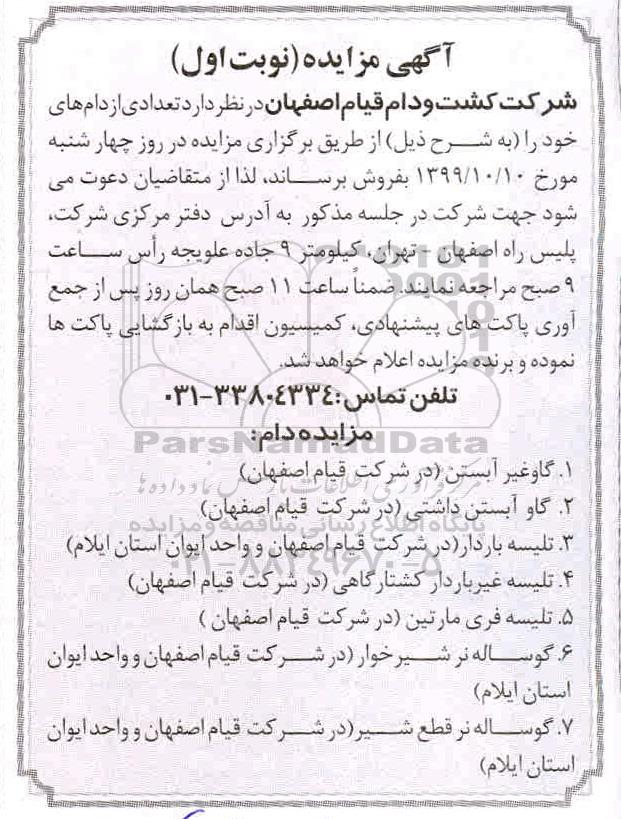 آگهی مزایده (نوبت اول)
شرکت کشت و دام قیام اصفهان در نظر دارد تعدادی از دام‌های
خود را (به شرح ذیل) از طریق برگزاری مزایده در روز چهار شنبه
مورخ ۱۳۹۹/۱۰/۱۰ بفروش برساند، لذا از متقاضیان دعوت می
شود جهت شرکت در جلسه مذکور به آدرس دفتر مرکزی شرکت،
پلیس راه اصفهان - تهران، کیلومتر ۹ جاده علویجه رأس ساعت
۹ صبح مراجعه نمایند. ضمناً ساعت ۱۱ صبح همان روز پس از جمع
آوری پاکت های پیشنهادی، کمیسیون اقدام به بازگشایی پاکت ها
نموده و برنده مزایده اعلام خواهد شد.
تلفن تماس: ۳۳۸۰۴۳۳۴-۰۳۱
مزایده دام:
ParsNamadData
۱. گاو غیر آبستن (در شرکت قیام اصفهان)
۲. گاو آبستن داشتی (در شرکت قیام اصفهان)
پایگاه اطلاع رسانی مناقصه و مزایده
۳. تلیسه باردار (در شرکت قیام اصفهان و واحد ایوان استان ایلام)
۰۲۱-۸۸۳۴۹۶۷۰-۵
۴. تلیسه غیرباردار کشتارگاهی (در شرکت قیام اصفهان)
۵. تلیسه فری مارتین (در شرکت قیام اصفهان )
۶. گوساله نر شیرخوار (در شرکت قیام اصفهان و واحد ایوان
استان ایلام)
۷. گوساله نر قطع شیر (در شرکت قیام اصفهان و واحد ایوان
استان ایلام)